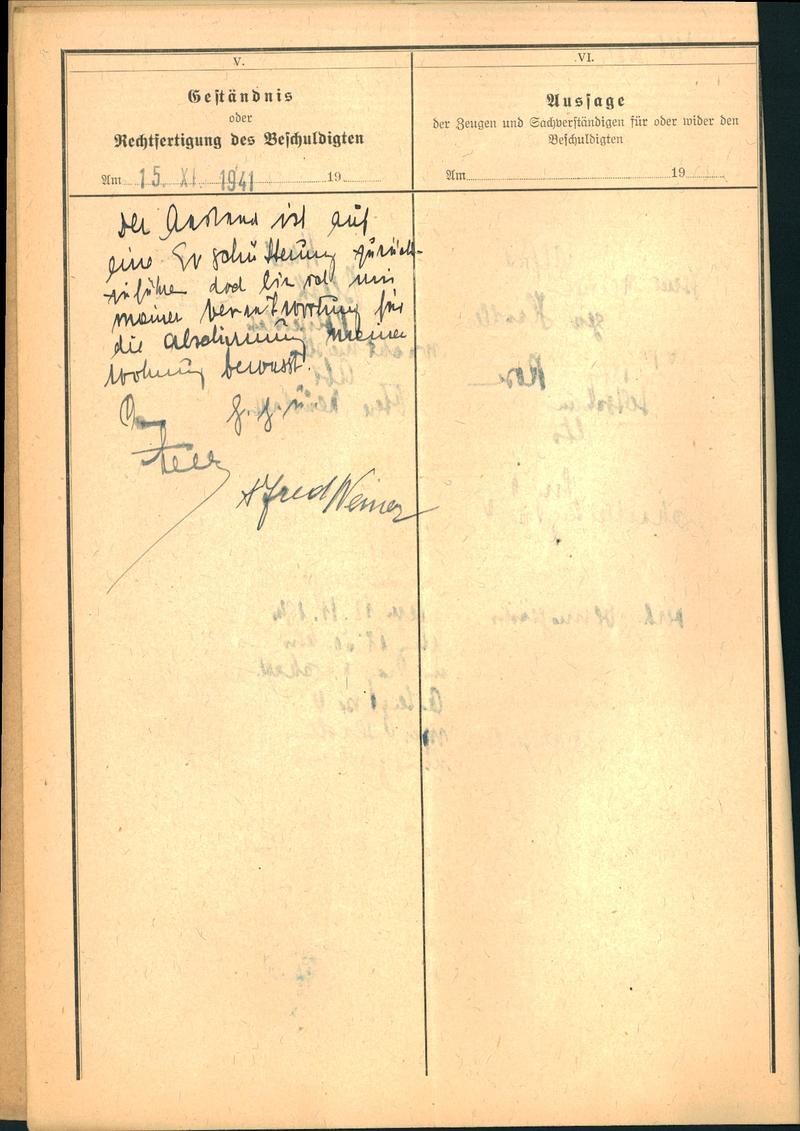 V.
Geständnis
oder
Rechtfertigung des Beschuldigten
Am 15. XI. 1941 19
Der Anstand ist auf
eine Erschütterung zurück-
zuführen doch bin ich mir
meiner Verantwortung für
die Abschirmung meiner
Wohnung bewusst.
g. g. u.
Alfred Weiner
VI.
Aussage
der Zeugen und Sachverständigen für oder wider den
Beschuldigten
Am 19